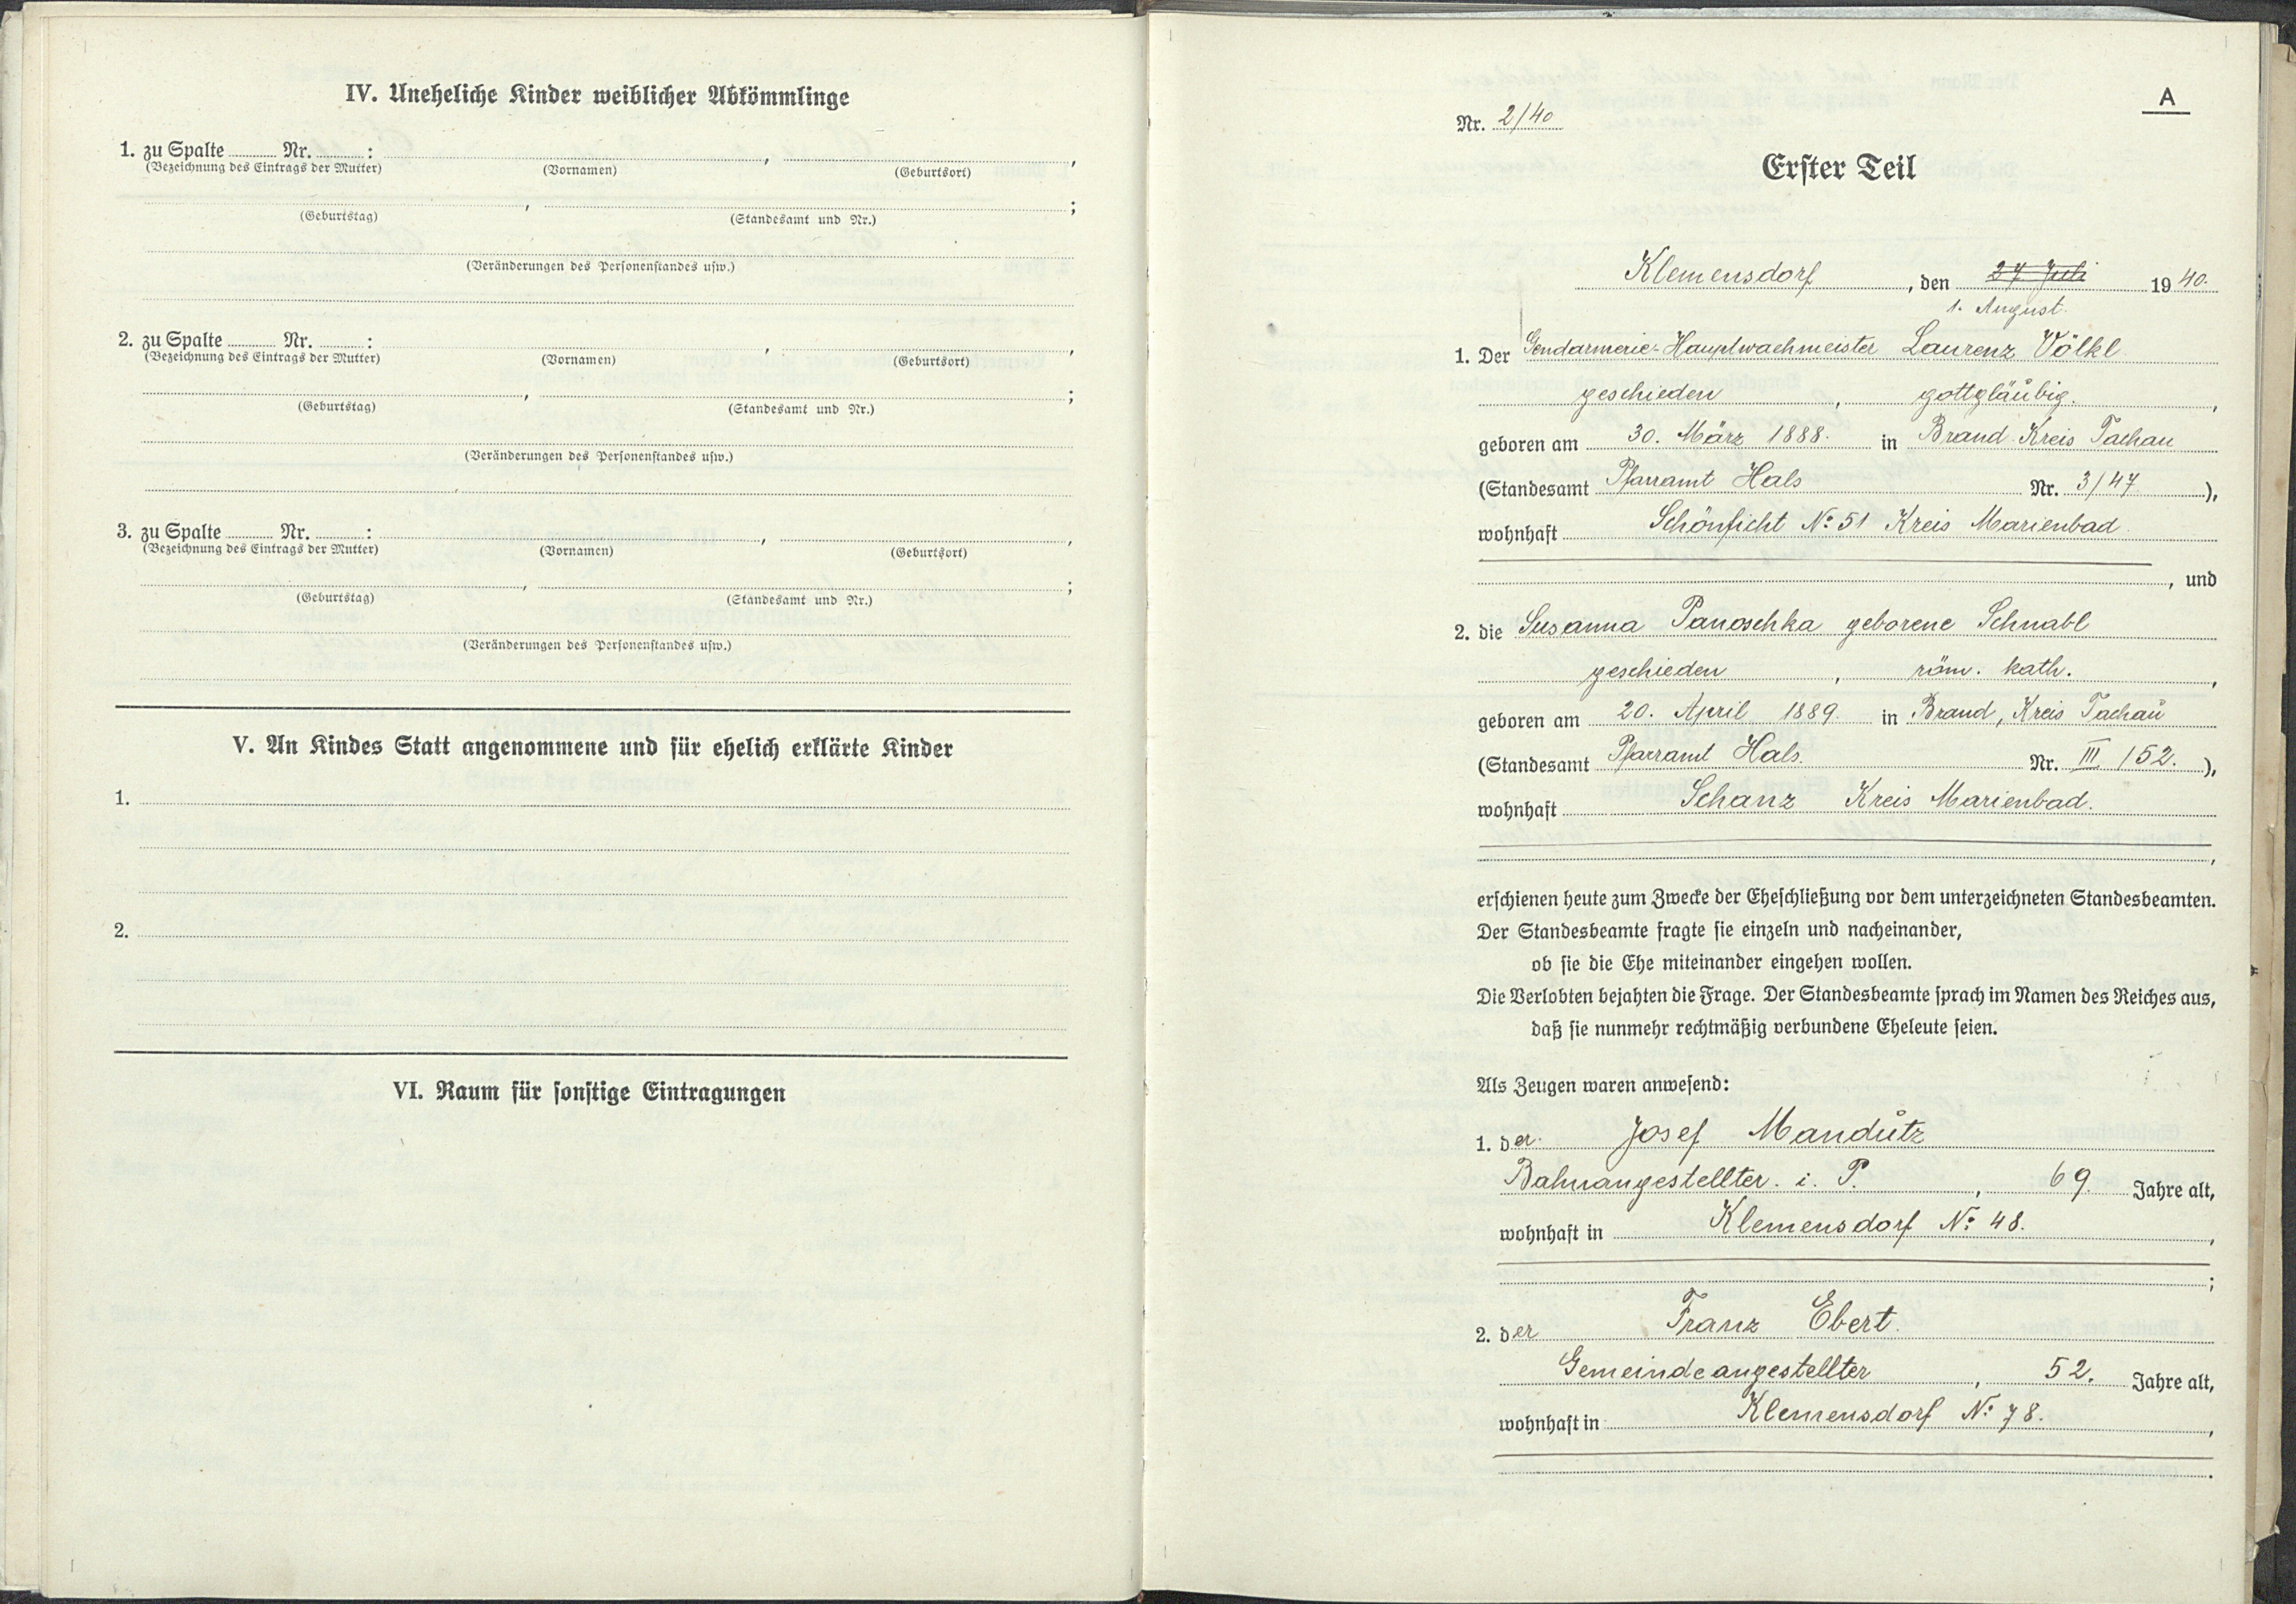 IV. Uneheliche Kinder weiblicher Abkömmlinge
1. zu Spalte ........ Nr. ........ : , ,
(Bezeichnung des Eintrags der Mutter) (Vornamen) (Geburtsort)
, ;
(Geburtstag) (Standesamt und Nr.)
(Veränderungen des Personenstandes usw.)
2. zu Spalte ........ Nr. ........ : , ,
(Bezeichnung des Eintrags der Mutter) (Vornamen) (Geburtsort)
, ;
(Geburtstag) (Standesamt und Nr.)
(Veränderungen des Personenstandes usw.)
3. zu Spalte ........ Nr. ........ : , ,
(Bezeichnung des Eintrags der Mutter) (Vornamen) (Geburtsort)
, ;
(Geburtstag) (Standesamt und Nr.)
(Veränderungen des Personenstandes usw.)
V. An Kindes Statt angenommene und für ehelich erklärte Kinder
1.
2.
VI. Raum für sonstige Eintragungen
A
Nr. 2/40
Erster Teil
Klemensdorf, den 27 Juli 1940.
1. August.
1. Der Gendarmerie-Hauptwachmeister Laurenz Völkl
geschieden, gottgläubig.,
geboren am 30. März 1888. in Brand Kreis Tachau
(Standesamt Pfarramt Hals Nr. 3/47),
wohnhaft Schönficht No 51 Kreis Marienbad.
, und
2. die Susanna Panoschka geborene Schnabl
geschieden, röm. kath.,
geboren am 20. April 1889. in Brand, Kreis Tachau
(Standesamt Pfarramt Hals. Nr. III /52.),
wohnhaft Schanz Kreis Marienbad.
,
erschienen heute zum Zwecke der Eheschließung vor dem unterzeichneten Standesbeamten.
Der Standesbeamte fragte sie einzeln und nacheinander,
ob sie die Ehe miteinander eingehen wollen.
Die Verlobten bejahten die Frage. Der Standesbeamte sprach im Namen des Reiches aus,
daß sie nunmehr rechtmäßig verbundene Eheleute seien.
Als Zeugen waren anwesend:
1. der Josef Mandutz
Bahnangestellter. i. P., 69. Jahre alt,
wohnhaft in Klemensdorf No 48.,
;
2. der Franz Ebert.
Gemeindeangestellter, 52. Jahre alt,
wohnhaft in Klemensdorf No 78.,
.